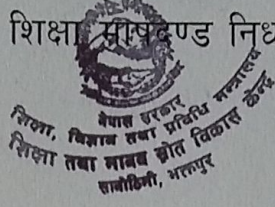 शिक्षा मापदण्ड निर्ध
नेपाल सरकार
शिक्षा, विज्ञान तथा प्रविधि मन्त्रालय
शिक्षा तथा मानव स्रोत विकास केन्द्र
सानोठिमी, भक्तपुर